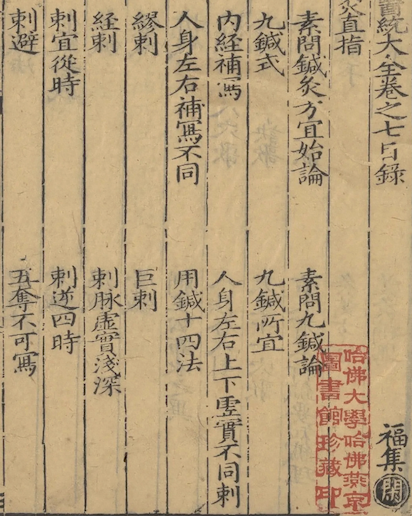 統大全卷之七目錄
福集
灸直指
素問鍼灸方宜始論　素問九鍼論
九鍼式　九鍼所宜
內經補寫　人身左右上下虛實不同刺
人身左右補寫不同　用鍼十四法
繆刺　巨刺
經刺　刺脉虛實淺深
刺宜從時　刺逆四時
刺避　五奪不可寫
哈佛大學哈佛燕京
圖書館珍藏印